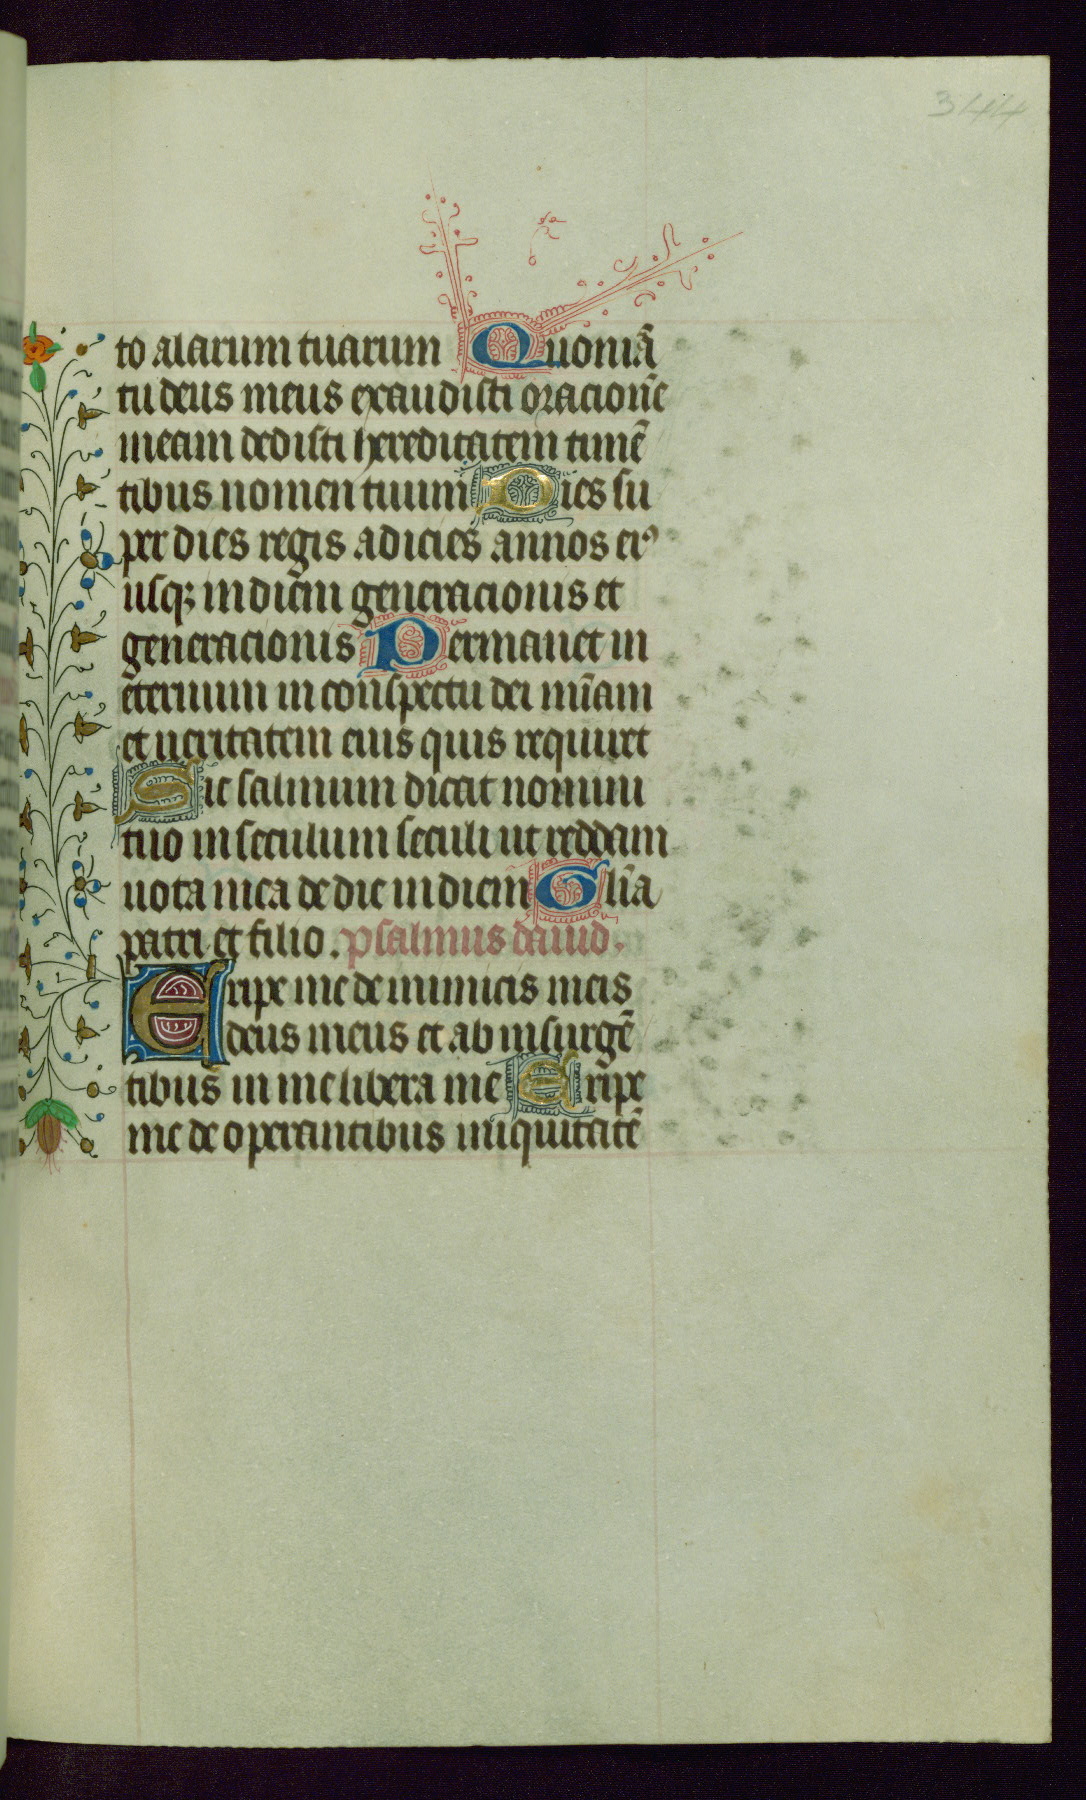 344
to alarum tuarum Quoniā
tu deus meus exaudisti oracionē
meam dedisti hereditatem timē
tibus nomen tuum Dies su
per dies regis adicies annos eiꝰ
usqꝫ in diem generacionis et
generacionis Permanet in
eternum in conspectu dei mīam
et ueritatem eius quis requiret
Sic salmum dicat nomini
tuo in seculum seculi ut reddam
uota mea de die in diem Glīa
patri et filio. psalmus dauid.
Eripe me de inimicis meis
deus meus et ab insurgē
tibus in me libera me Eripe
me de operantibus iniquitatē